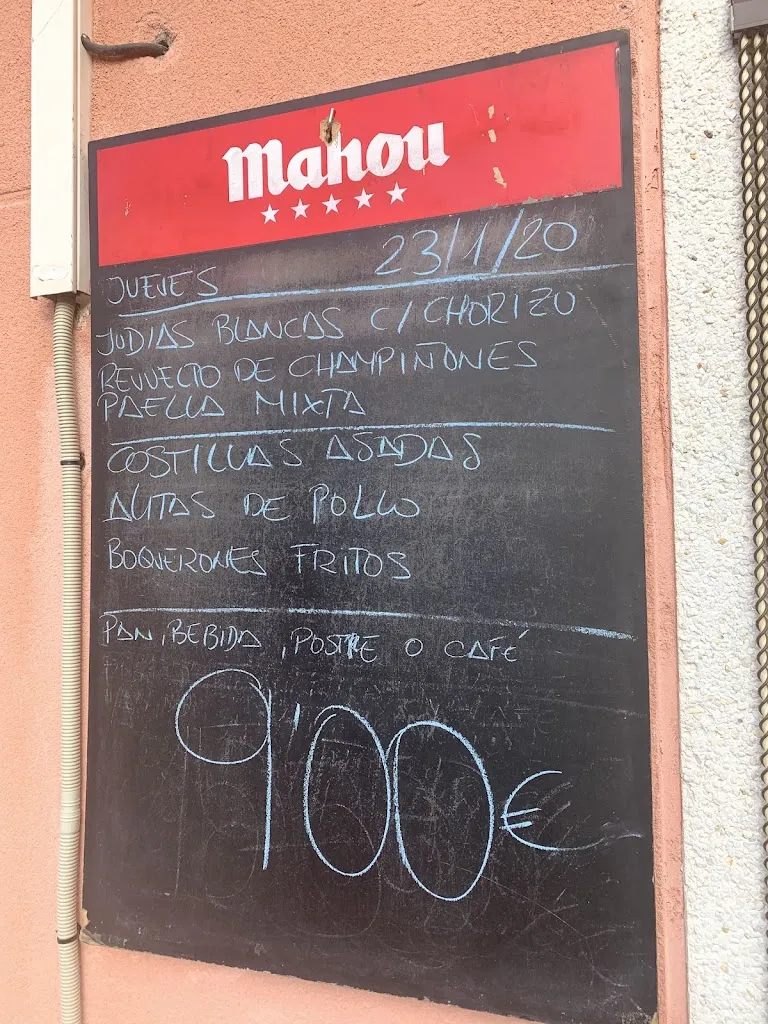 Mahou
JUEVES 23/1/20
JUDIAS BLANCAS C/CHORIZO
REVUELTO DE CHAMPIÑONES
PAELLA MIXTA
COSTILLAS ASADAS
ALITAS DE POLLO
BOQUERONES FRITOS
PAN, BEBIDA, POSTRE O CAFÉ
9'00€